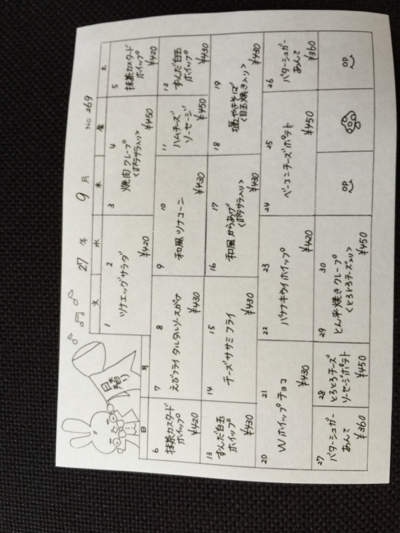 27年 9月 No 269
日 月 火 水 木 金 土
1 2
ツナエッグサラダ
¥420
3 4
焼肉クレープ
¥450
5
抹茶カスタード
ホイップ
¥420
6
抹茶カスタード
ホイップ
¥420
7 8
えびフライタルタルソースがけ
¥430
9 10
和風ツナコーン
¥430
11
ハムチーズ
ソーセージ
¥450
12
ずんだ白玉
ホイップ
¥430
13
ずんだ白玉
ホイップ
¥430
14 15
チーズササミフライ
¥430
16 17
和風からあげ
¥430
18 19
塩やきそば
<目玉焼き入り>
¥430
20 21
Wホイップチョコ
¥430
22 23
バナナキウイホイップ
¥420
24 25
ベーコンチーズポテト
¥450
26
バターシュガー
あんこ
¥360
27
バターシュガー
あんこ
¥360
28
とろとろチーズ
ソーセージポテト
¥450
29 30
とん平焼きクレープ
<とろとろチーズ入り>
¥450